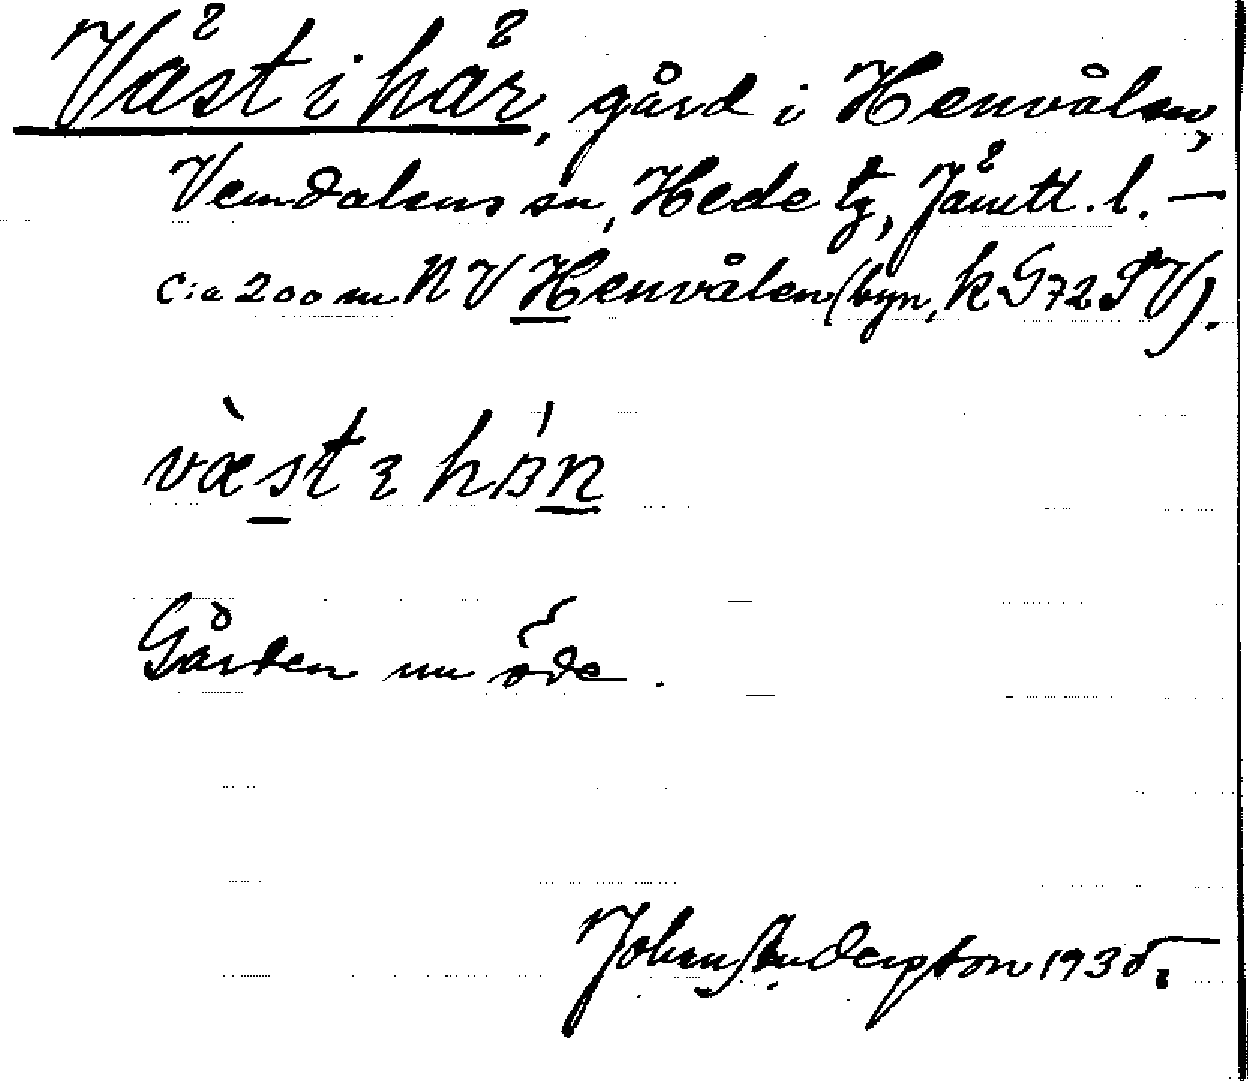 Våst i hår, gård i Henvålen,
Vemdalens sn, Hede tg, Jämtl. l. —
c:a 200 m NV Henvålen (byn, k G72 SV).
væst ı hɒ́n
Gården nu öde.
Johan Anderpson 1935.